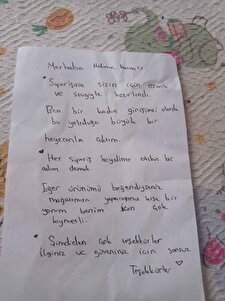 Merhaba Halime hanım ♡
"Siparişiniz sizin için özenle
ve sevgiyle hazırlandı.
Ben bir kadın girişimci olarak
bu yolculuğa büyük bir
heyecanla çıktım
"Her sipariş hayalime atılan bir
adım demek.
Eğer ürünümü beğendiyseniz
mağazamıza yapacağınız kısa bir
yorum benim için çok
kıymetli.
"Şimdiden çok teşekkürler
ilginiz ve güveniniz için sonsuz
Teşekkürler ♡